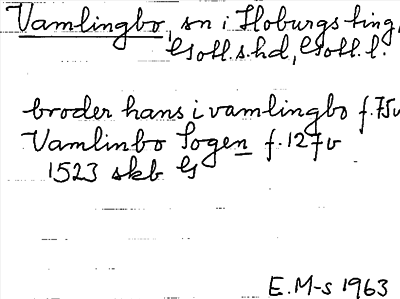 Vamlingbo, sn i Hoburgs ting,
Gotl.s.hd, Gotl.l.
broder hans i vamlingbo f.75v
Vamlinbo Sogen f.127v
1523 skb G
E.M-s 1963